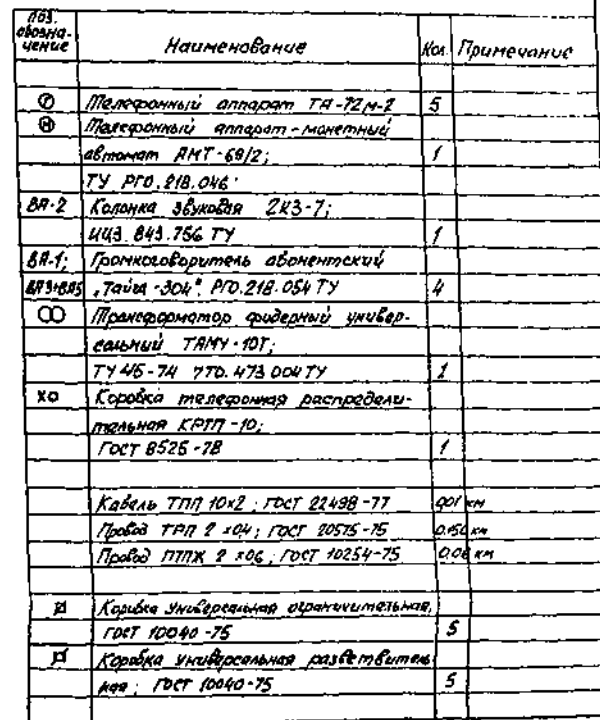 Поз. обозна-чение Наименование Кол. Примечание
Телефонный аппарат ТА-72М-2 5
Телефонный аппарат-монетный
автомат АМТ-69/2; 1
ТУ РГ0.218.046
ВА-2 Колонка звуковая 2КЗ-7;
ИЦЗ.843.756 ТУ 1
ВА-1; Громкоговоритель абонентский
ВА3÷ВА5 „Тайга-304". РГ0.218.054 ТУ 4
Трансформатор фидерный универ-
сальный ТАМУ-10Т;
ТУ 45-74 7Т0.473 004 ТУ 1
ХО Коробка телефонная распредели-
тельная КРТП-10;
ГОСТ 8525-78 1
Кабель ТПП 10х2; ГОСТ 22498-77 0,01 км
Провод ТРП 2х04; ГОСТ 20575-75 0.150 км
Провод ПТПЖ 2х06; ГОСТ 10254-75 0,06 км
Коробка универсальная ограничительная,
ГОСТ 10040-75 5
Коробка универсальная разветвитель
ная; ГОСТ 10040-75 5